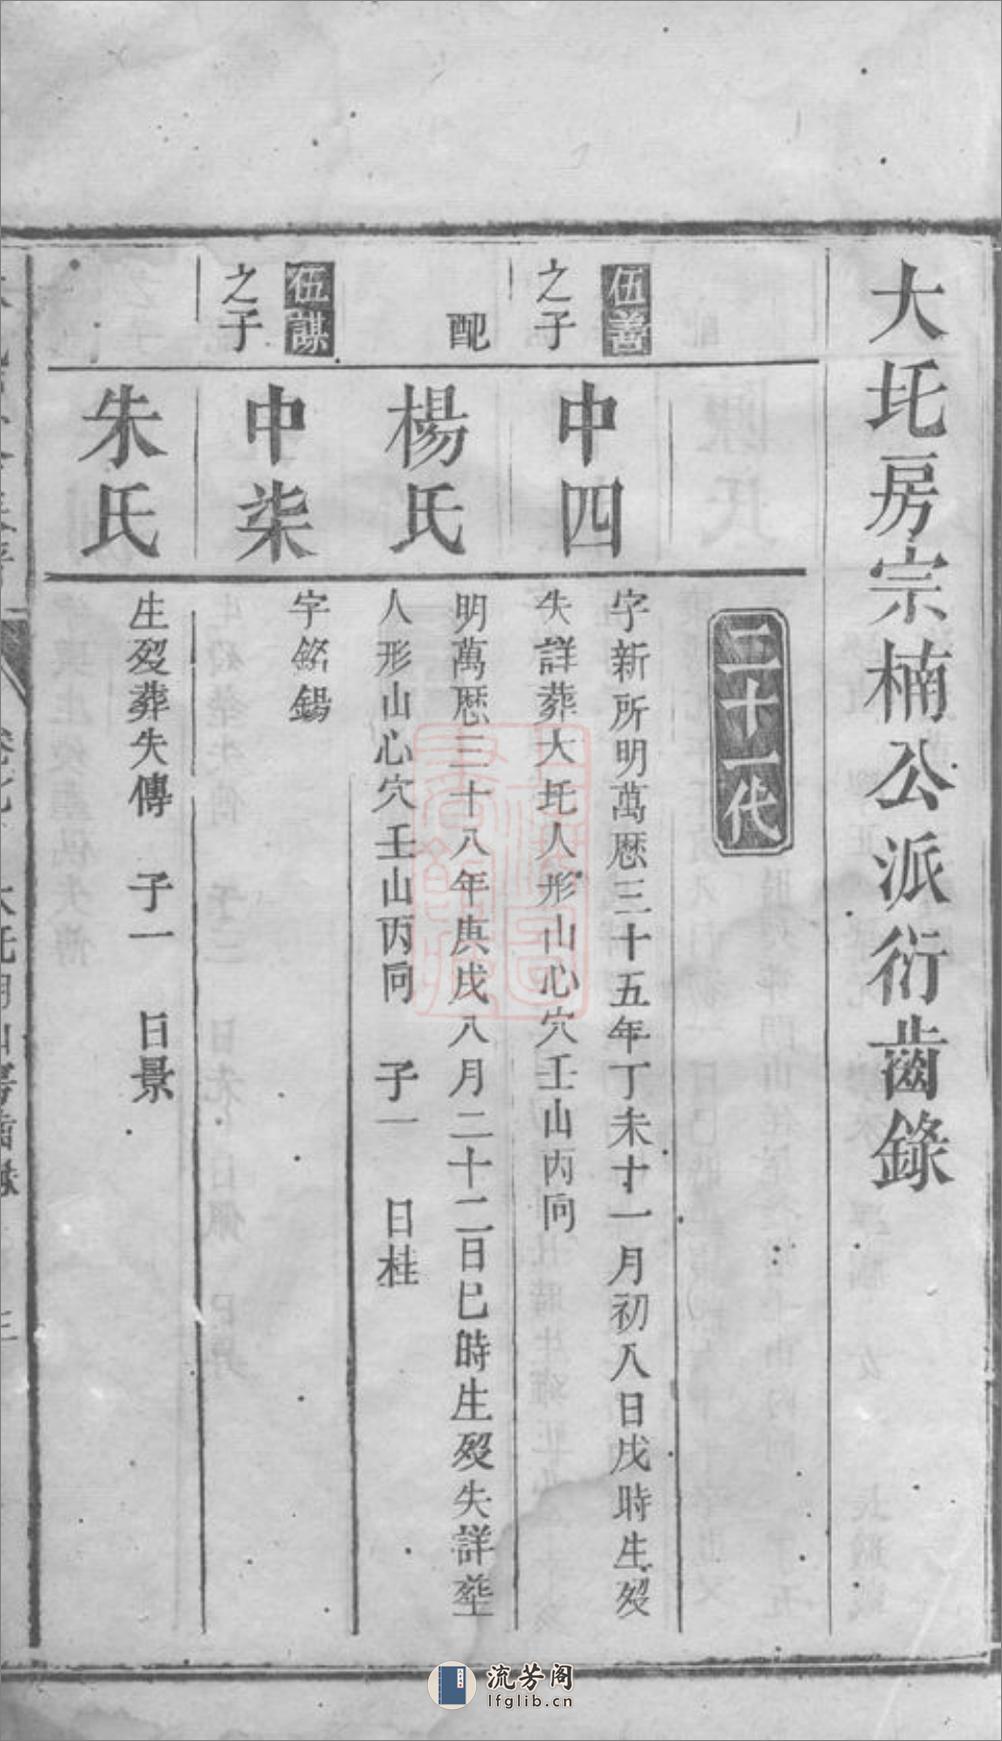 大圫房宗楠公派衍齒錄
二十一代
伍善
之子
中四
字新所明萬厯三十五年丁未十一月初八日戌時生歿
失詳葬大圫人形山心穴壬山丙向
配
楊氏
明萬厯三十八年庚戌八月二十二日巳時生歿失詳塟
人形山心穴壬山丙向 子一 日桂
伍謀
之子
中柒
字銘錫
朱氏
生歿葬失傳 子一 日景
流芳阁
lfglib.cn